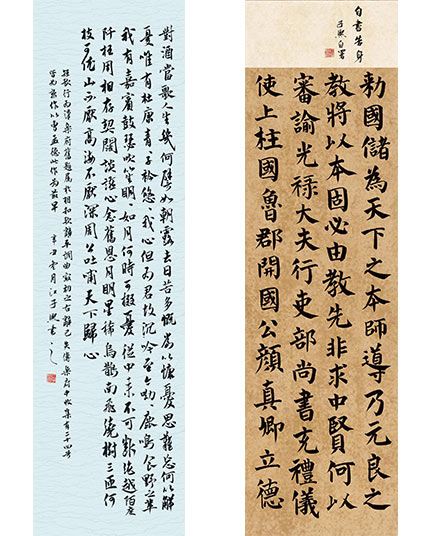 自書告身
勑國儲為天下之本師導乃元良之
教將以本固必由教先非求中賢何以
審諭光祿大夫行吏部尚書充禮儀
使上柱國魯郡開國公顏真卿立德
對酒當歌人生幾何譬如朝露去日苦多慨當以慷憂思難忘何以解
憂唯有杜康青青子衿悠悠我心但為君故沉吟至今呦呦鹿鳴食野之苹
我有嘉賓鼓瑟吹笙明明如月何時可掇憂從中來不可斷絕越陌度
阡枉用相存契闊談讌心念舊恩月明星稀烏鵲南飛繞樹三匝何
枝可依山不厭高海不厭深周公吐哺天下歸心
短歌行為漢樂府舊題屬於相和歌辭平調曲最初之古辭已失傳樂府中收集有二十四首
曹孟德此作為最早 辛丑